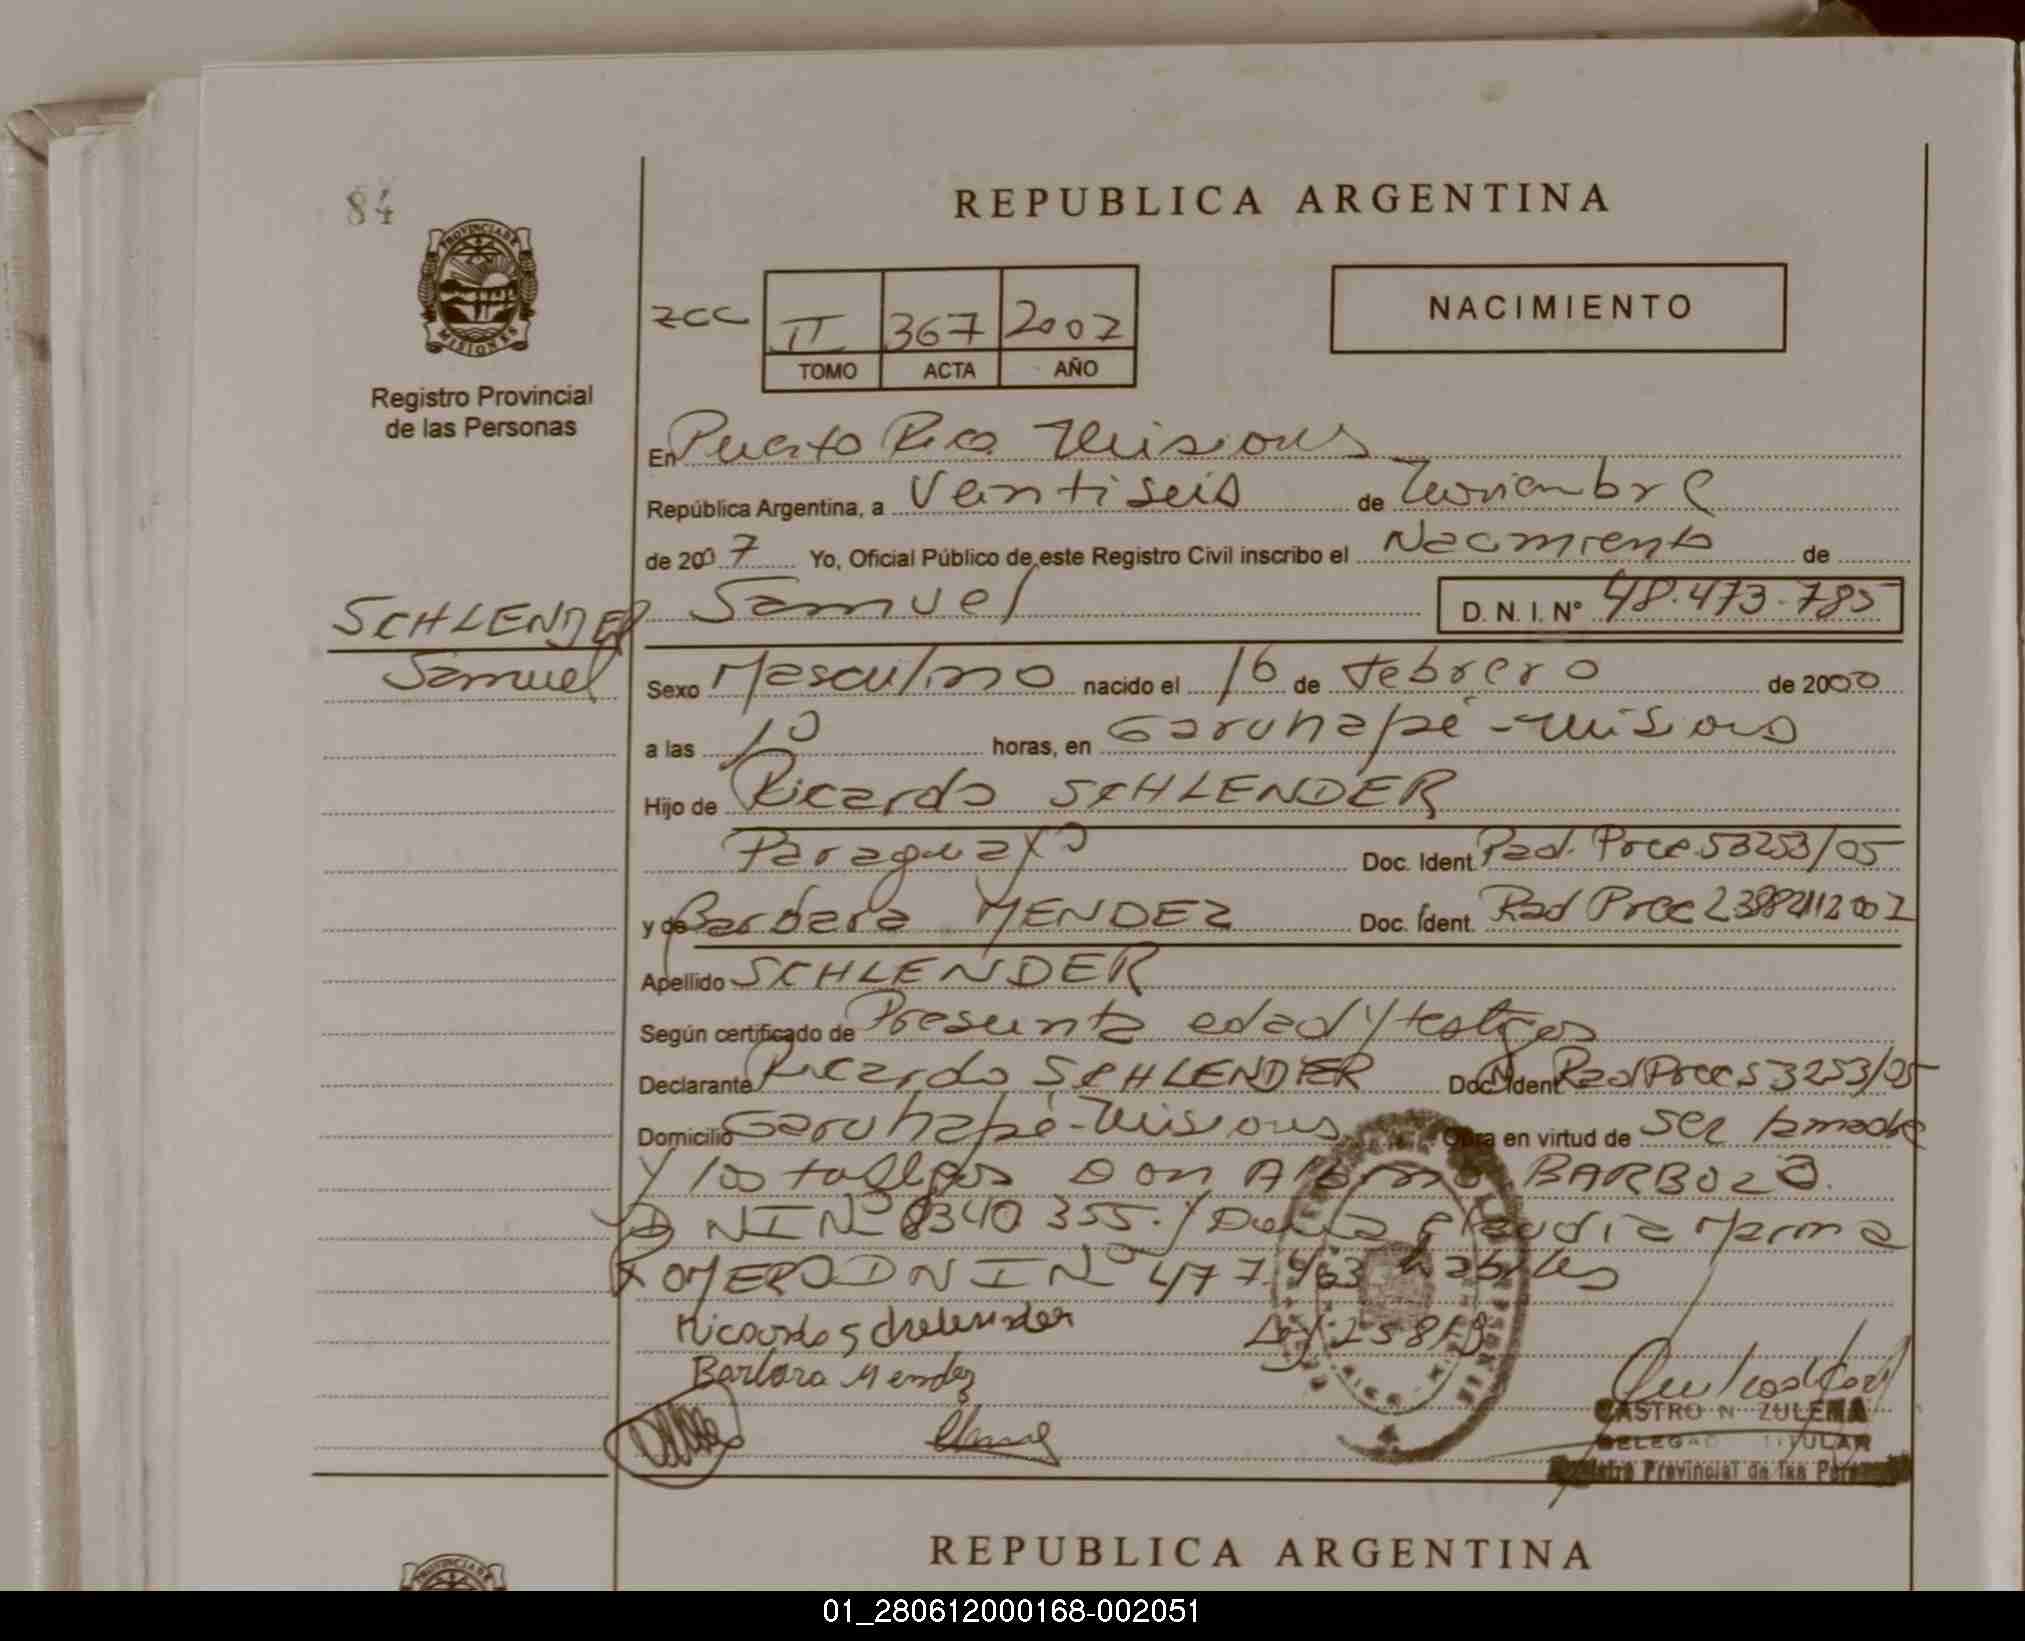 84
REPUBLICA ARGENTINA
PROVINCIA DE
MISIONES
NACIMIENTO
ZCC II 367 2007
TOMO ACTA AÑO
Registro Provincial
de las Personas
En Puerto Rico Misiones
República Argentina, a Veintiseis de Noviembre
de 2007 Yo, Oficial Público de este Registro Civil inscribo el Nacimiento de
SCHLENDER Samuel D. N. I. Nº 48.473.785
Samuel Sexo Masculino nacido el 16 de febrero de 2000
a las 10 horas, en Garuhapé - Misiones
Hijo de Ricardo SCHLENDER
Paraguayo Doc. Ident. Rad. Prec. 53253/05
y de Barbara MENDEZ Doc. Ident. Rad Prec
Apellido SCHLENDER
Según certificado de Presunta edad y testigos
Declarante Ricardo SCHLENDER Doc. Ident Rad Prec 53253/05
Domicilio Garuhapé - Misiones Obra en virtud de ser la madre
y los testigos Don BARBOZA
DNI Nº 8340 355. y Doña Claudia Marina
ROMERO DNI Nº 477.463 habiles
Ricardo schelender Ley 25819
Barbara Mendez
CASTRO N ZULEMA
DELEGAD TITULAR
Registro Provincial de las Personas
REPUBLICA ARGENTINA
PROVINCIA DE
01_280612000168-002051